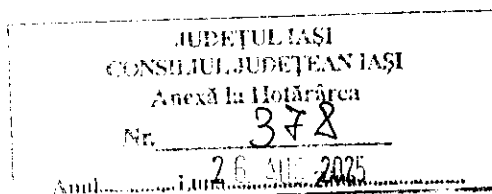 JUDEȚUL IAȘI
CONSILIUL JUDEȚEAN IAȘI
Anexă la Hotărârea
Nr. 378
Anul.............Luna 26 2025